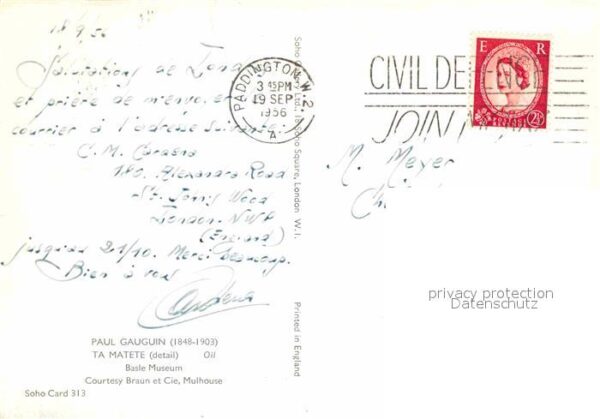 18/9/56
Salutations de Londres
et prière de m'envoyer
courrier à l'adresse suivante:
C. M.
180. Alexandra Road
St. John's Wood
London. NW8
(England)
jusqu'au 21/10. Merci beaucoup.
Bien à vous
PAUL GAUGUIN (1848-1903)
TA MATETE (detail) Oil
Basle Museum
Courtesy Braun et Cie, Mulhouse
Soho Card 313
Soho Gallery Ltd., 18 Soho Square, London W.1.
Printed in England
PADDINGTON. W.2
3 45PM
19 SEPT
1956
A
CIVIL DE
JOIN
E R
2½
M. Meyer
privacy protection
Datenschutz